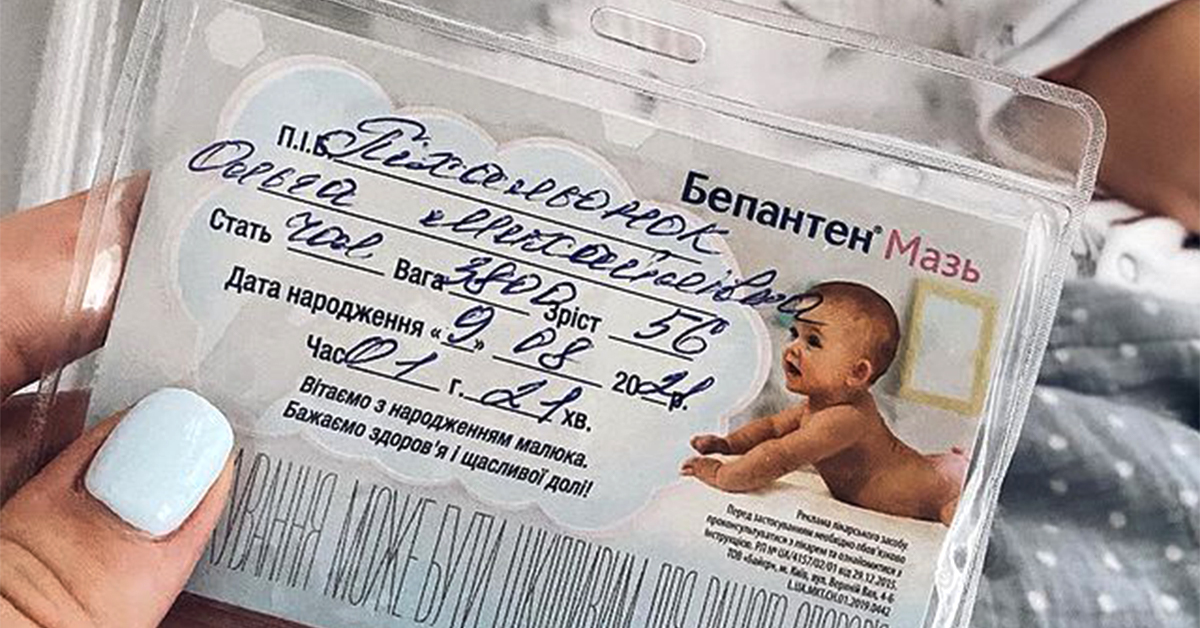 Бепантен® Мазь
П.І.Б. Піхальонок
Ольга Михайлівна
Стать чол Вага 3800 Зріст 56
Дата народження «9» 08 2021р.
Час 01 г. 21 хв.
Вітаємо з народженням малюка.
Бажаємо здоров'я і щасливої долі!
Реклама лікарського засобу.
Перед застосуванням необхідно обов'язково
проконсультуватися з лікарем та ознайомитися з
інструкцією. РП № UA/4157/02/01 від 29.12.2015.
ТОВ «Байєр», м. Київ, вул. Верхній Вал, 4-б
L.UA.MKT.CH.01.2019.0442
МОЖЕ БУТИ ШКІДЛИВИМ ДЛЯ ВАШОГО ЗДОРОВ'Я